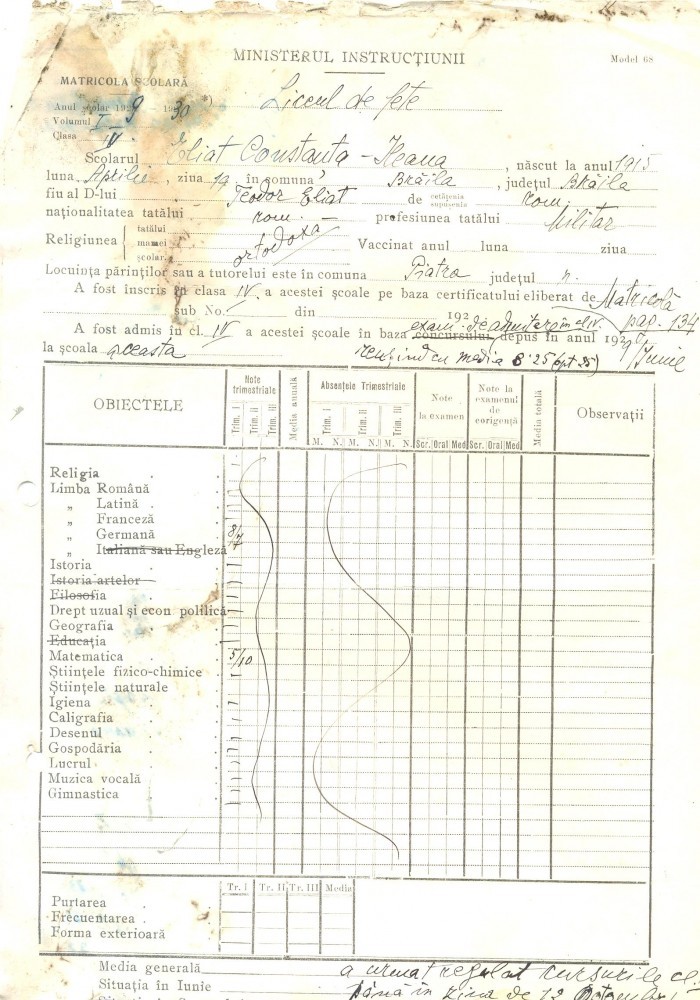 MINISTERUL INSTRUCȚIUNII
Model 68
MATRICOLA SCOLARĂ
Liceul de fete
Anul școlar 1929 - 1930 *)
Volumul I
Clasa IV
Școlarul Eliat Constanta - Ileana, născut la anul 1915
luna Aprilie, ziua 19, în comuna Brăila, județul Brăila
fiu al D-lui Teodor Eliat de cetățenia supușenia rom.
naționalitatea tatălui rom. profesiunea tatălui Militar
Religiunea { tatălui mamei școlar. ortodoxa Vaccinat anul luna ziua
Locuința părinților sau a tutorelui este în comuna Piatra județul n.
A fost înscris în clasa IV a acestei școale pe baza certificatului eliberat de Matricolă
sub No. din 192 pag. 134
A fost admis în cl. IV a acestei școale în baza concursului depus în anul 1929 Iunie
la școala aceasta cu media 8.25 (opt 25)
OBIECTELE
Note trimestriale
Trim. I
Trim. II
Trim. III
Media anuală
Absențele Trimestriale
Trim. I
Trim. II
Trim. III
M. N. M. N. M. N.
Note la examen
Scr. Oral Med.
Note la examenul de corigență
Scr. Oral Med.
Media totală
Observații
Religia
Limba Română
„ Latină
„ Franceză
„ Germană 8/7
„ Italiană sau Engleză
Istoria
Istoria artelor
Filosofia
Drept uzual și econ politică
Geografia
Educația
Matematica 5/10
Științele fizico-chimice
Științele naturale
Igiena
Caligrafia
Desenul
Gospodăria
Lucrul
Muzica vocală
Gimnastica
Tr. I Tr. II Tr. III Media
Purtarea
Frecuentarea
Forma exterioară
Media generală a urmat regulat cursurile
Situația în Iunie până în ziua de 12